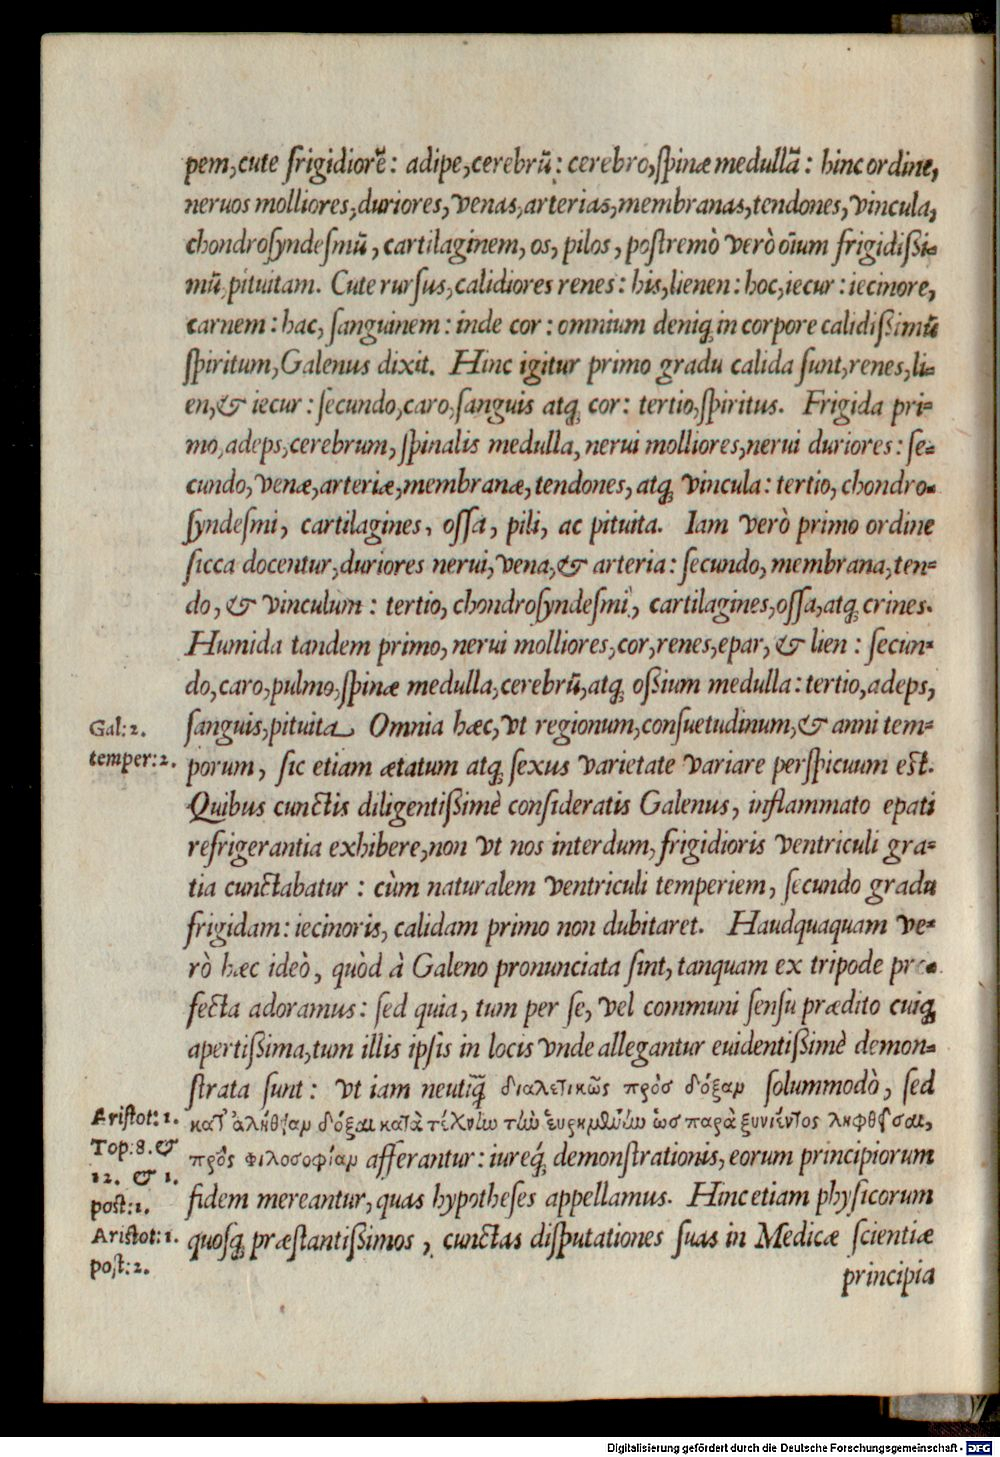 pem,cute frigidiorẽ: adipe,cerebrũ: cerebro,ſpinæ medullã: hinc ordine,
neruos molliores,duriores, venas,arterias,membranas,tendones, vincula,
chondroſyndeſmũ, cartilaginem, os, pilos, poſtremò verò oĩum frigidißi-
mũ,pituitam. Cute rurſus,calidiores renes: his,lienen: hoc,iecur: iecinore,
carnem: hac, ſanguinem: inde cor: omnium deniq; in corpore calidißimũ
ſpiritum,Galenus dixit. Hinc igitur primo gradu calida ſunt,renes,li-
en,& iecur: ſecundo,caro,ſanguis atq; cor: tertio,ſpiritus. Frigida pri-
mo,adeps,cerebrum, ſpinalis medulla, nerui molliores,nerui duriores: ſe-
cundo, venæ,arteriæ,membranæ, tendones, atq; vincula: tertio, chondro-
ſyndeſmi, cartilagines, oſſa, pili, ac pituita. Iam verò primo ordine
ſicca docentur,duriores nerui, vena,& arteria: ſecundo, membrana,ten-
do, & vinculum: tertio, chondroſyndeſmi, cartilagines,oſſa,atq; crines.
Humida tandem primo, nerui molliores,cor,renes,epar, & lien: ſecun-
do,caro,pulmo,ſpinæ medulla,cerebrũ,atq; oßium medulla: tertio,adeps,
Gal: 2.
temper: 2.
ſanguis,pituita. Omnia hæc, vt regionum,conſuetudinum,& anni tem-
porum, ſic etiam ætatum atq; ſexus varietate variare perſpicuum eſt.
Quibus cunctis diligentißimè conſideratis Galenus, inflammato epati
refrigerantia exhibere,non vt nos interdum, frigidioris ventriculi gra-
tia cunctabatur: cùm naturalem ventriculi temperiem, ſecundo gradu
frigidam: iecinoris, calidam primo non dubitaret. Haudquaquam ve-
rò hæc ideò, quòd à Galeno pronunciata ſint, tanquam ex tripode præ-
fecta adoramus: ſed quia, tum per ſe, vel communi ſenſu prædito cuiq;
apertißima,tum illis ipſis in locis vnde allegantur euidentißimè demon-
ſtrata ſunt: vt iam neutiq̃ διαλετικῶς πρὸσ δόξαν ſolummodò, ſed
Ariſtot: 1.
Top: 8. &
12. & 1.
poſt: 1.
Ariſtot: 1.
poſt: 2.
κατ' ἀλήθειαν δόξαι κατὰ τέχνίω τίω ἑυρημθύίω ὡσ παρὰ ξυνιέντος ληφθῆσαι,
πρὸς φιλοσοφίαν afferantur: iureq́; demonſtrationis, eorum principiorum
fidem mereantur, quas hypotheſes appellamus. Hinc etiam phyſicorum
quoſq; præſtantißimos, cunctas diſputationes ſuas in Medicæ ſcientiæ
principia
Digitalisierung gefördert durch die Deutsche Forschungsgemeinschaft - DFG